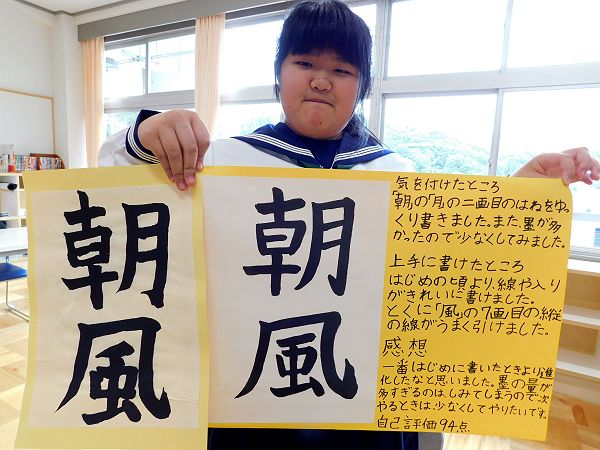 朝風
朝風
気を付けたところ
「朝」の「月」の二画目のはねをゆっ
くり書きました。また、墨が多
かったので少なくしてみました。
上手に書けたところ
はじめの頃より、線や入り
がきれいに書けました。
とくに「風」の7画目の縦
の線がうまく引けました。
感想
一番はじめに書いたときより進
化したなと思いました。墨の量が
多すぎるのは、しみてしまうので、次
やるときは、少なくしてやりたいです。
自己評価94点